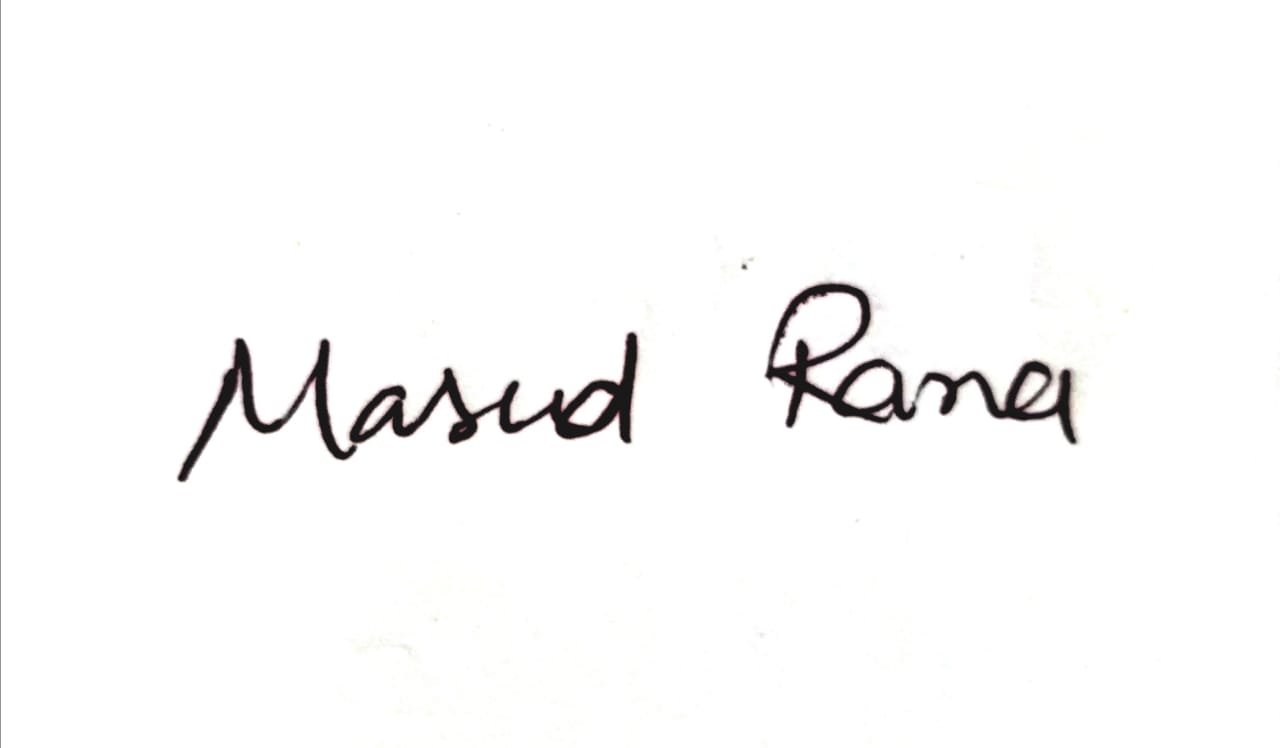 Masud Rana